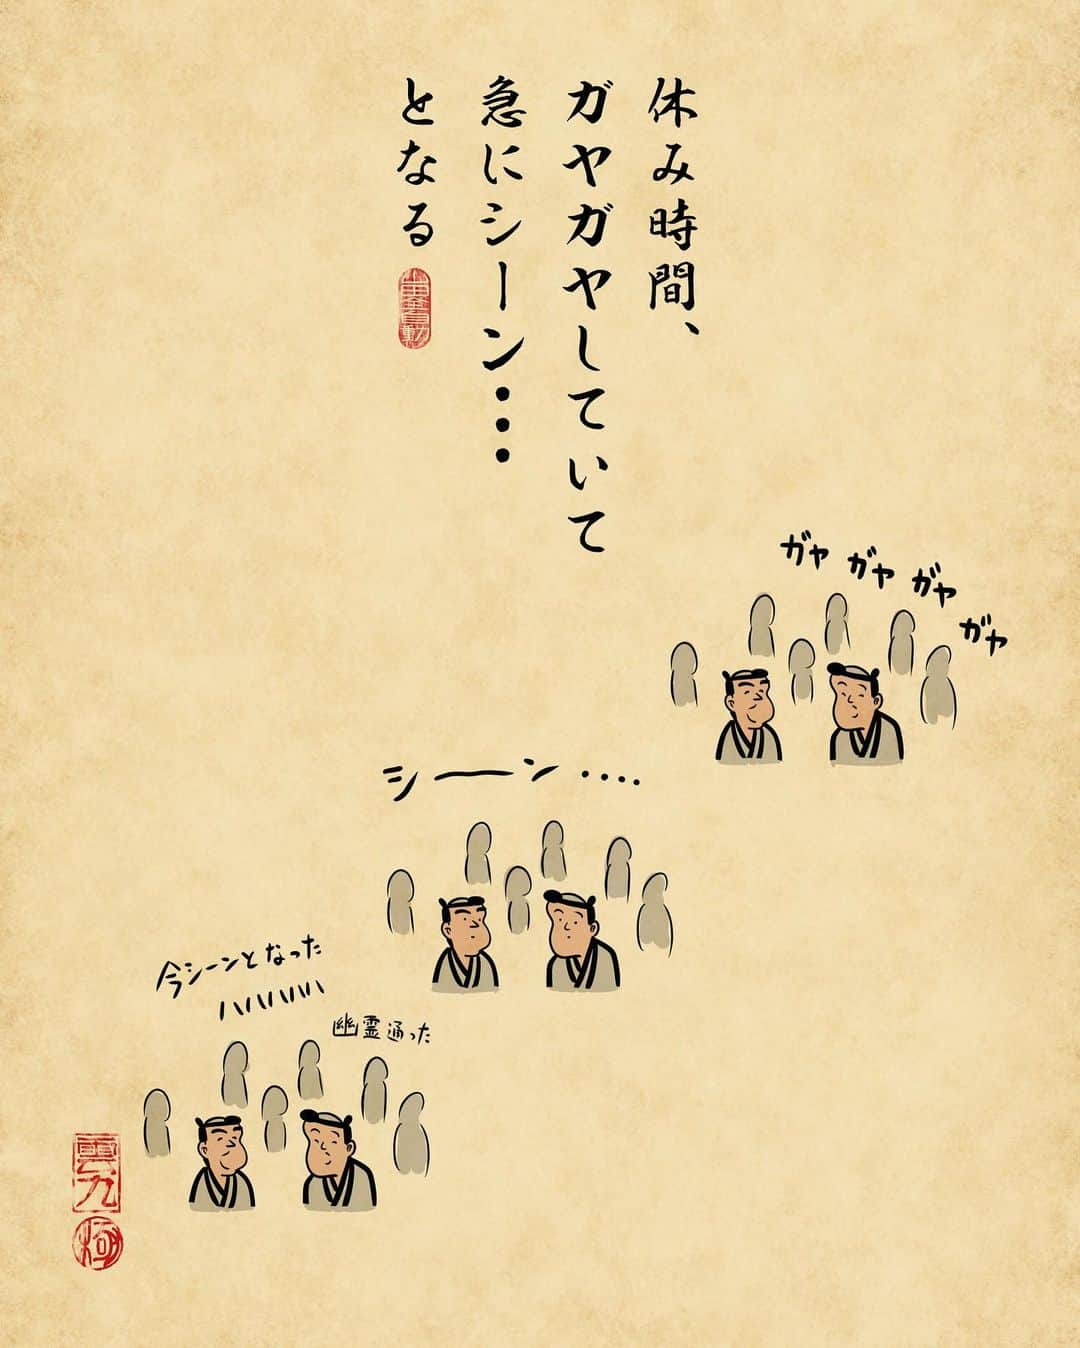 休み時間、
ガヤガヤしていて
急にシーン・・・
となる
ガヤ ガヤ ガヤ ガヤ
シーン・・・・
今シーンとなった
ハハハハハ
幽霊通った